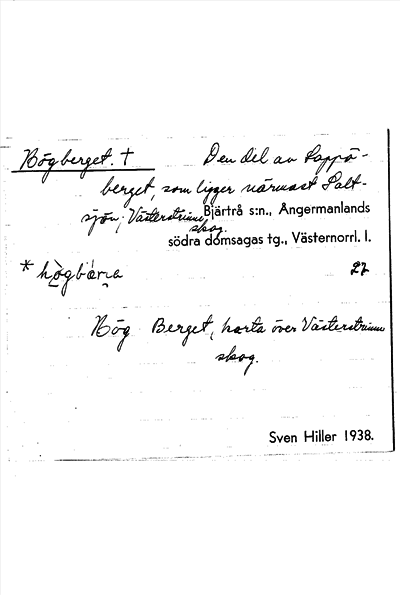 Högberget. † Den del av Lappö-
berget, som ligger närmast Salt-
sjön; Västerstrinne
skog.
Bjärtrå s:n., Ångermanlands
södra domsagas tg., Västernorrl. l.
* hògbár̥a 22
Hög Berget, karta över Västerstrinne
skog.
Sven Hiller 1938.